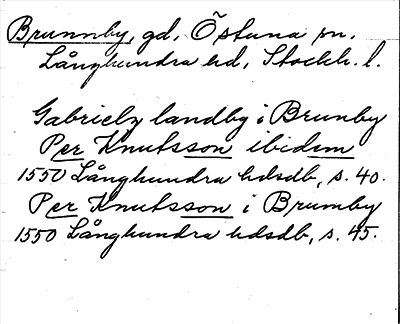 Brunnby, gd, Östuna sn,
Långhundra hd, Stockh. l.
Gabriels landbg i Brunby
Per Knutsson ibidem
1550 Långhundra hdsdb, s. 40.
Per Knutsson i Brumby
1550 Långhundra hdsdb, s. 45.